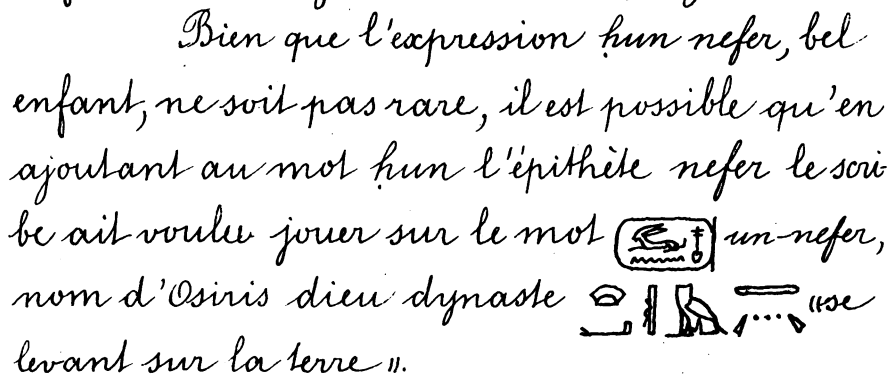 Bien que l'expression ḥun nefer, bel
enfant, ne soit pas rare, il est possible qu'en
ajoutant au mot ḥun l'épithète nefer le scri-
be ait voulu jouer sur le mot un-nefer,
nom d'Osiris dieu dynaste «se
levant sur la terre».